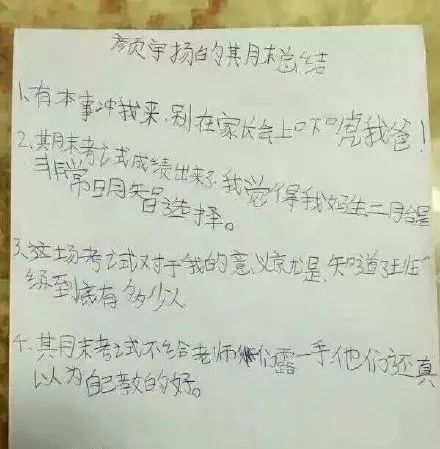 颜宇扬的期末总结
1、有本事冲我来,别在家长会上吓唬我爸!
2、期末考试成绩出来了,我觉得我妈生二胎是
非常明智选择。
3、这场考试对于我的意义就是,知道了班
级到底有多少人
4、期末考试不给老师们露一手,他们还真
以为自己教的好。